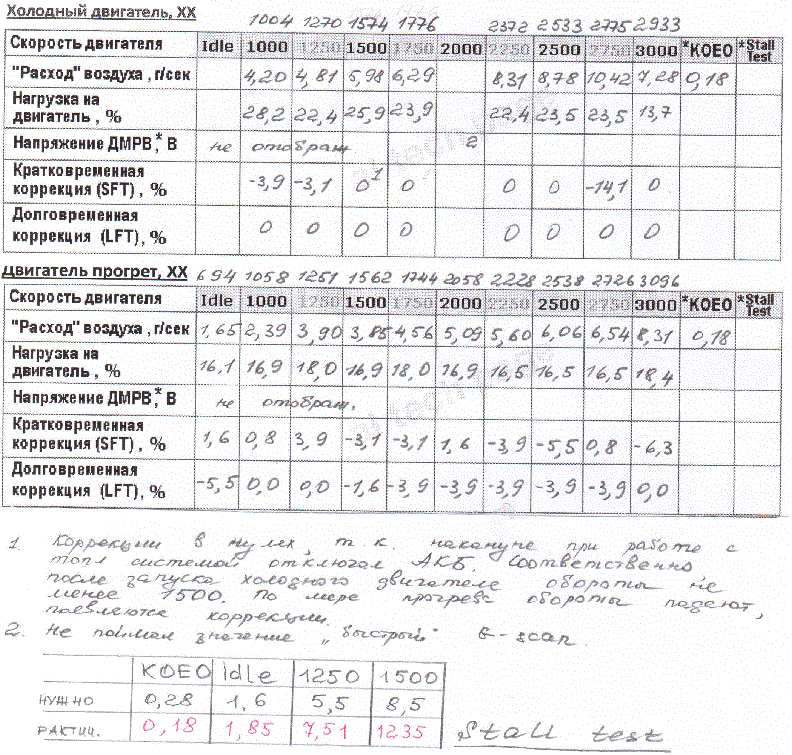 Холодный двигатель, ХХ
1004 1270 1574 1776 2372 2533 2775 2933
Скорость двигателя Idle 1000 1250 1500 1750 2000 2250 2500 2750 3000 *KOEO *Stall Test
"Расход" воздуха , г/сек 4,20 4,81 5,98 6,29 8,31 8,78 10,42 7,28 0,18
Нагрузка на
двигатель , % 28,2 22,4 25,9 23,9 22,4 23,5 23,5 13,7
Напряжение ДМРВ,* В не отображ. 2
Кратковременная
коррекция (SFT) , % -3,9 -3,1 0 1 0 0 0 -14,1 0
Долговременная
коррекция (LFT), % 0 0 0 0 0 0 0 0
Двигатель прогрет, ХХ 694 1058 1251 1562 1744 2058 2228 2538 2726 3096
Скорость двигателя Idle 1000 1250 1500 1750 2000 2250 2500 2750 3000 *KOEO *Stall Test
"Расход" воздуха , г/сек 1,65 2,39 3,90 3,85 4,56 5,09 5,60 6,06 6,54 8,31 0,18
Нагрузка на
двигатель , % 16,1 16,9 18,0 16,9 18,0 16,9 16,5 16,5 16,5 18,4
Напряжение ДМРВ,* В не отображ.
Кратковременная
коррекция (SFT) , % 1,6 0,8 3,9 -3,1 -3,1 1,6 -3,9 -5,5 0,8 -6,3
Долговременная
коррекция (LFT), % -5,5 0,0 0,0 -1,6 -3,9 -3,9 -3,9 -3,9 -3,9 0,0
1 Коррекции в нулях, т.к. накануне при работе с
топл системой отключал АКБ. Соответственно
после запуска холодного двигателя обороты не
менее 1500. По мере прогрева обороты падают,
появляются коррекции.
2. Не поймал значение „быстрый" G-scan.
KOEO idle 1250 1500
НУЖНО 0,28 1,6 5,5 8,5
РАКТИЧ. 0,18 1,85 7,51 1235
Stall test